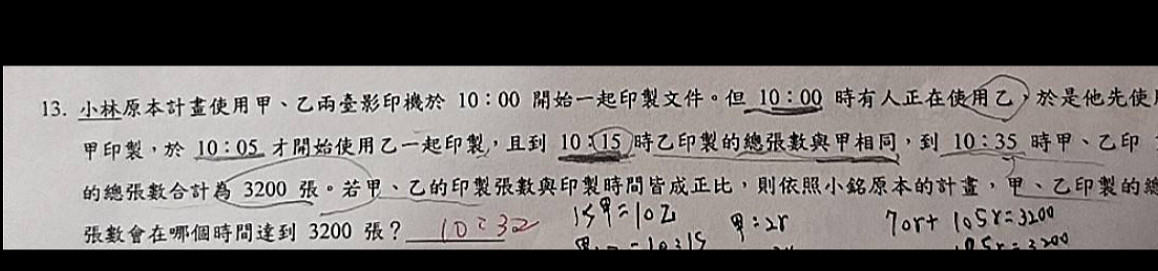 13. 小林原本計畫使用甲、乙兩臺影印機於 10：00 開始一起印製文件。但 10：00 時有人正在使用乙，於是他先使
甲印製，於 10：05 才開始使用乙一起印製，且到 10：15 時乙印製的總張數與甲相同，到 10：35 時甲、乙印
的總張數合計為 3200 張。若甲、乙的印製張數與印製時間皆成正比，則依照小銘原本的計畫，甲、乙印製的總
張數會在哪個時間達到 3200 張？ 10：32
15甲=10乙 甲：2r 70r+105r=3200